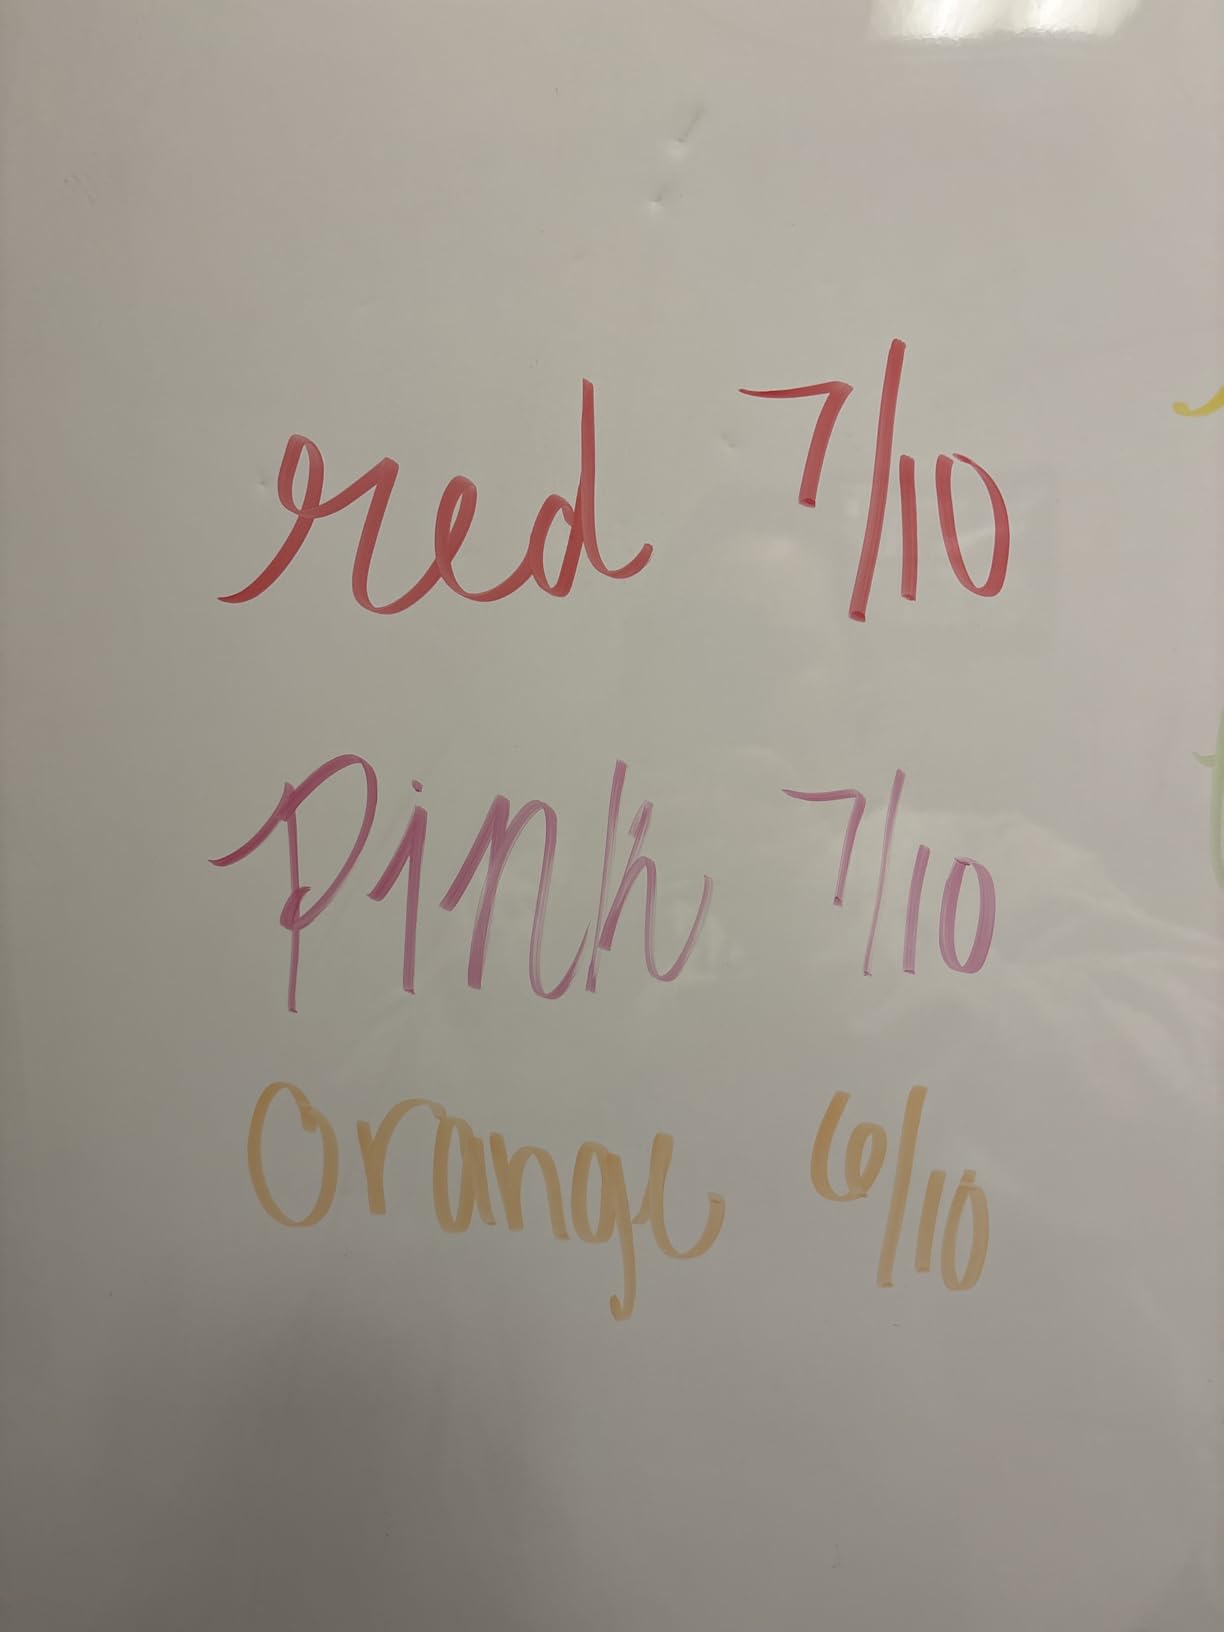 red 7/10
Pink 7/10
Orange 6/10